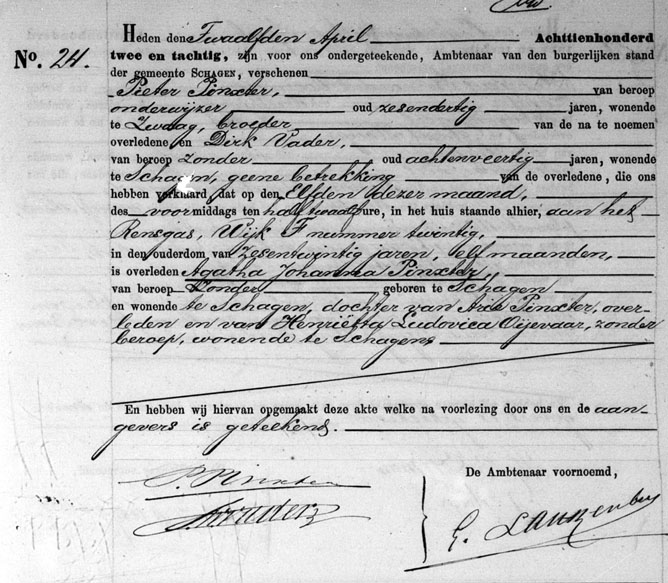 No. 24.
Heden den Twaalfden April Achttienhonderd
twee en tachtig, zijn voor ons ondergeteekende, Ambtenaar van den burgerlijken stand
der gemeente SCHAGEN, verschenen
Pieter Pinxter, van beroep
onderwijzer oud zesendertig jaren, wonende
te Zwaag, broeder van de na te noemen
overledene en Dirk Vader,
van beroep zonder oud achtenveertig jaren, wonende
te Schagen, geene betrekking van de overledene, die ons
hebben verklaard, dat op den Elfden dezer maand,
des voormiddags ten half twaalf ure, in het huis staande alhier, aan het
Rensgas, Wijk F nummer twintig,
in den ouderdom van zesentwintig jaren, elf maanden,
is overleden Agatha Johanna Pinxter,
van beroep zonder geboren te Schagen
en wonende te Schagen, dochter van Arie Pinxter, over-
leden en van Henriëtta Ludovica Oijevaar, zonder
beroep, wonende te Schagen
En hebben wij hiervan opgemaakt deze akte welke na voorlezing door ons en de aan-
gevers is geteekend.
P. Pinxter
De Ambtenaar voornoemd,